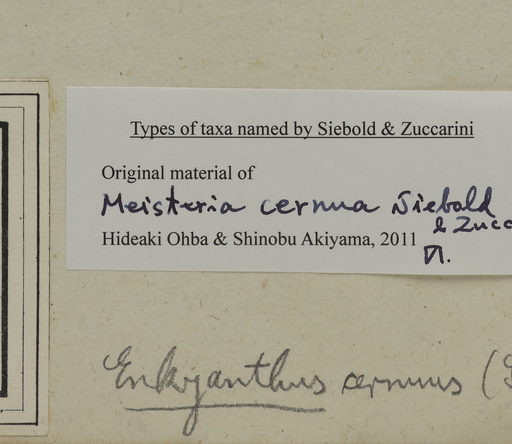 Types of taxa named by Siebold & Zuccarini
Original material of
Meisteria cernua Siebold
& Zucc
Hideaki Ohba & Shinobu Akiyama, 2011
Enkyanthus cernuus (